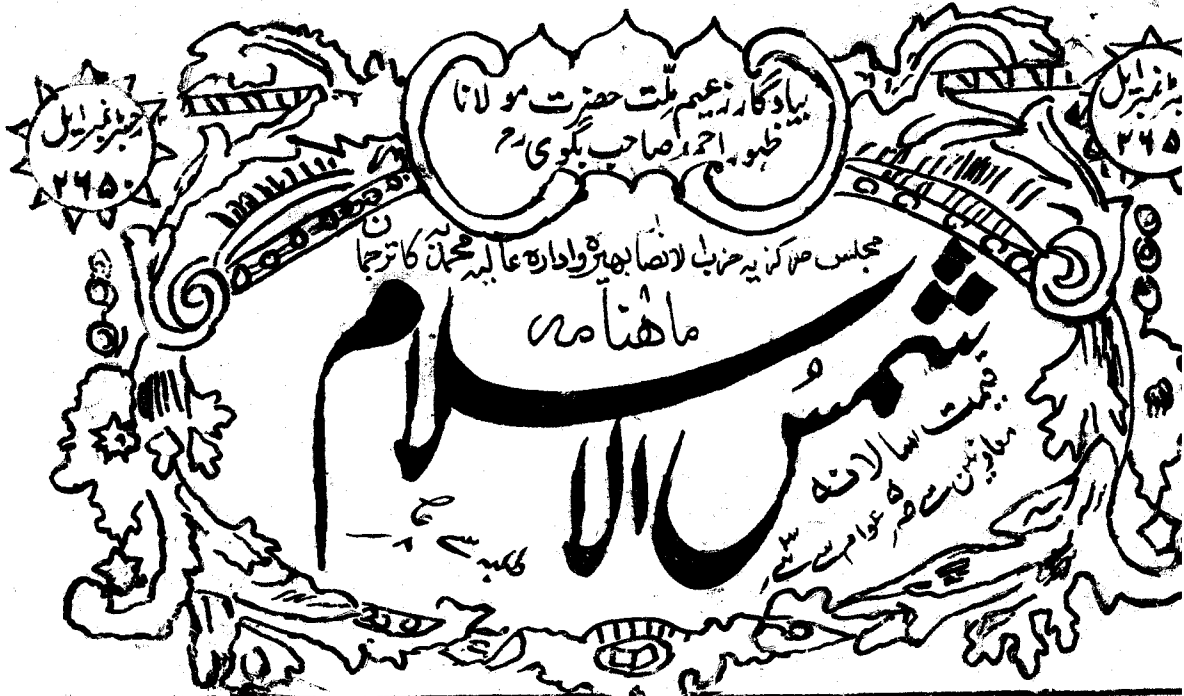 بیادگار زعیم ملّت حضرت مولانا
ظہور احمد صاحب بگوی رح
رجسٹرڈ نمبر ایل
۲۶۵۰
مجلس مرکزیہ حزب الانصار بھیرہ و ادارہ عالیہ محمدیہ کا ترجمان
ماھنامہ
شمسُ الاسلام
قیمت سالانہ
معاونین سے صر عوام سے
طلبہ سے